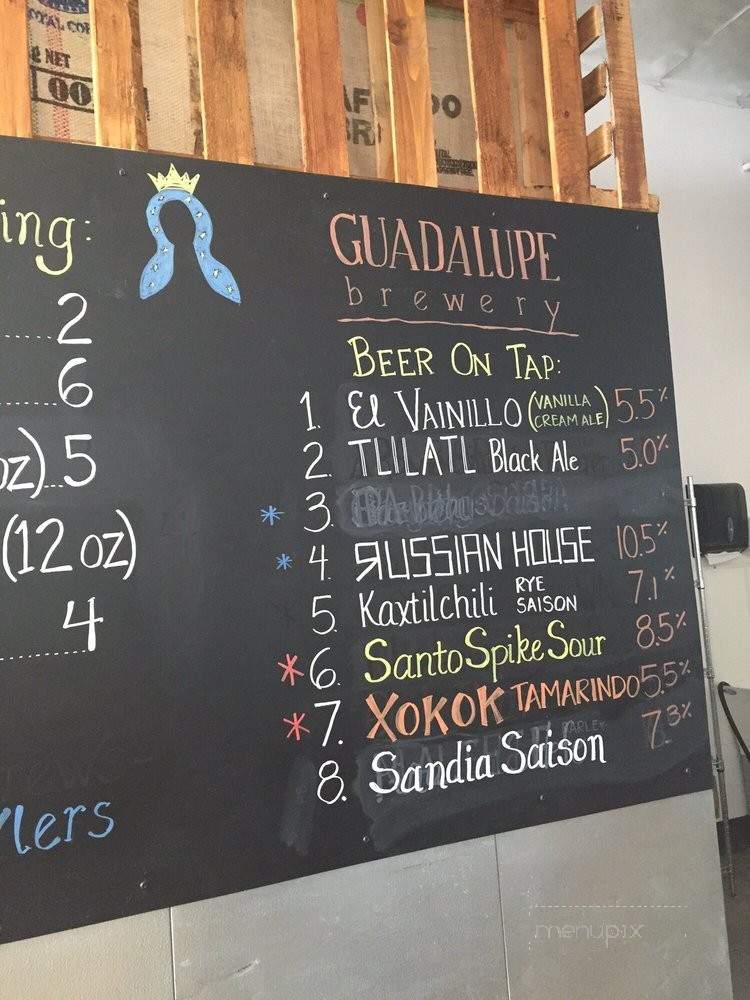 NET
00
ing:
2
6
oz)...5
(12 oz)
4
lers
GUADALUPE
brewery
BEER ON TAP:
1. El VAINILLO (VANILLA CREAM ALE) 5.5%
2. TLILATL Black Ale 5.0%
* 3.
* 4. ЯUSSIAN HOUSE 10.5%
5. Kaxtilchili RYE SAISON 7.1%
* 6. Santo Spike Sour 8.5%
* 7. XOKOK TAMARINDO 5.5%
8. Sandia Saison 7.3%
menupix